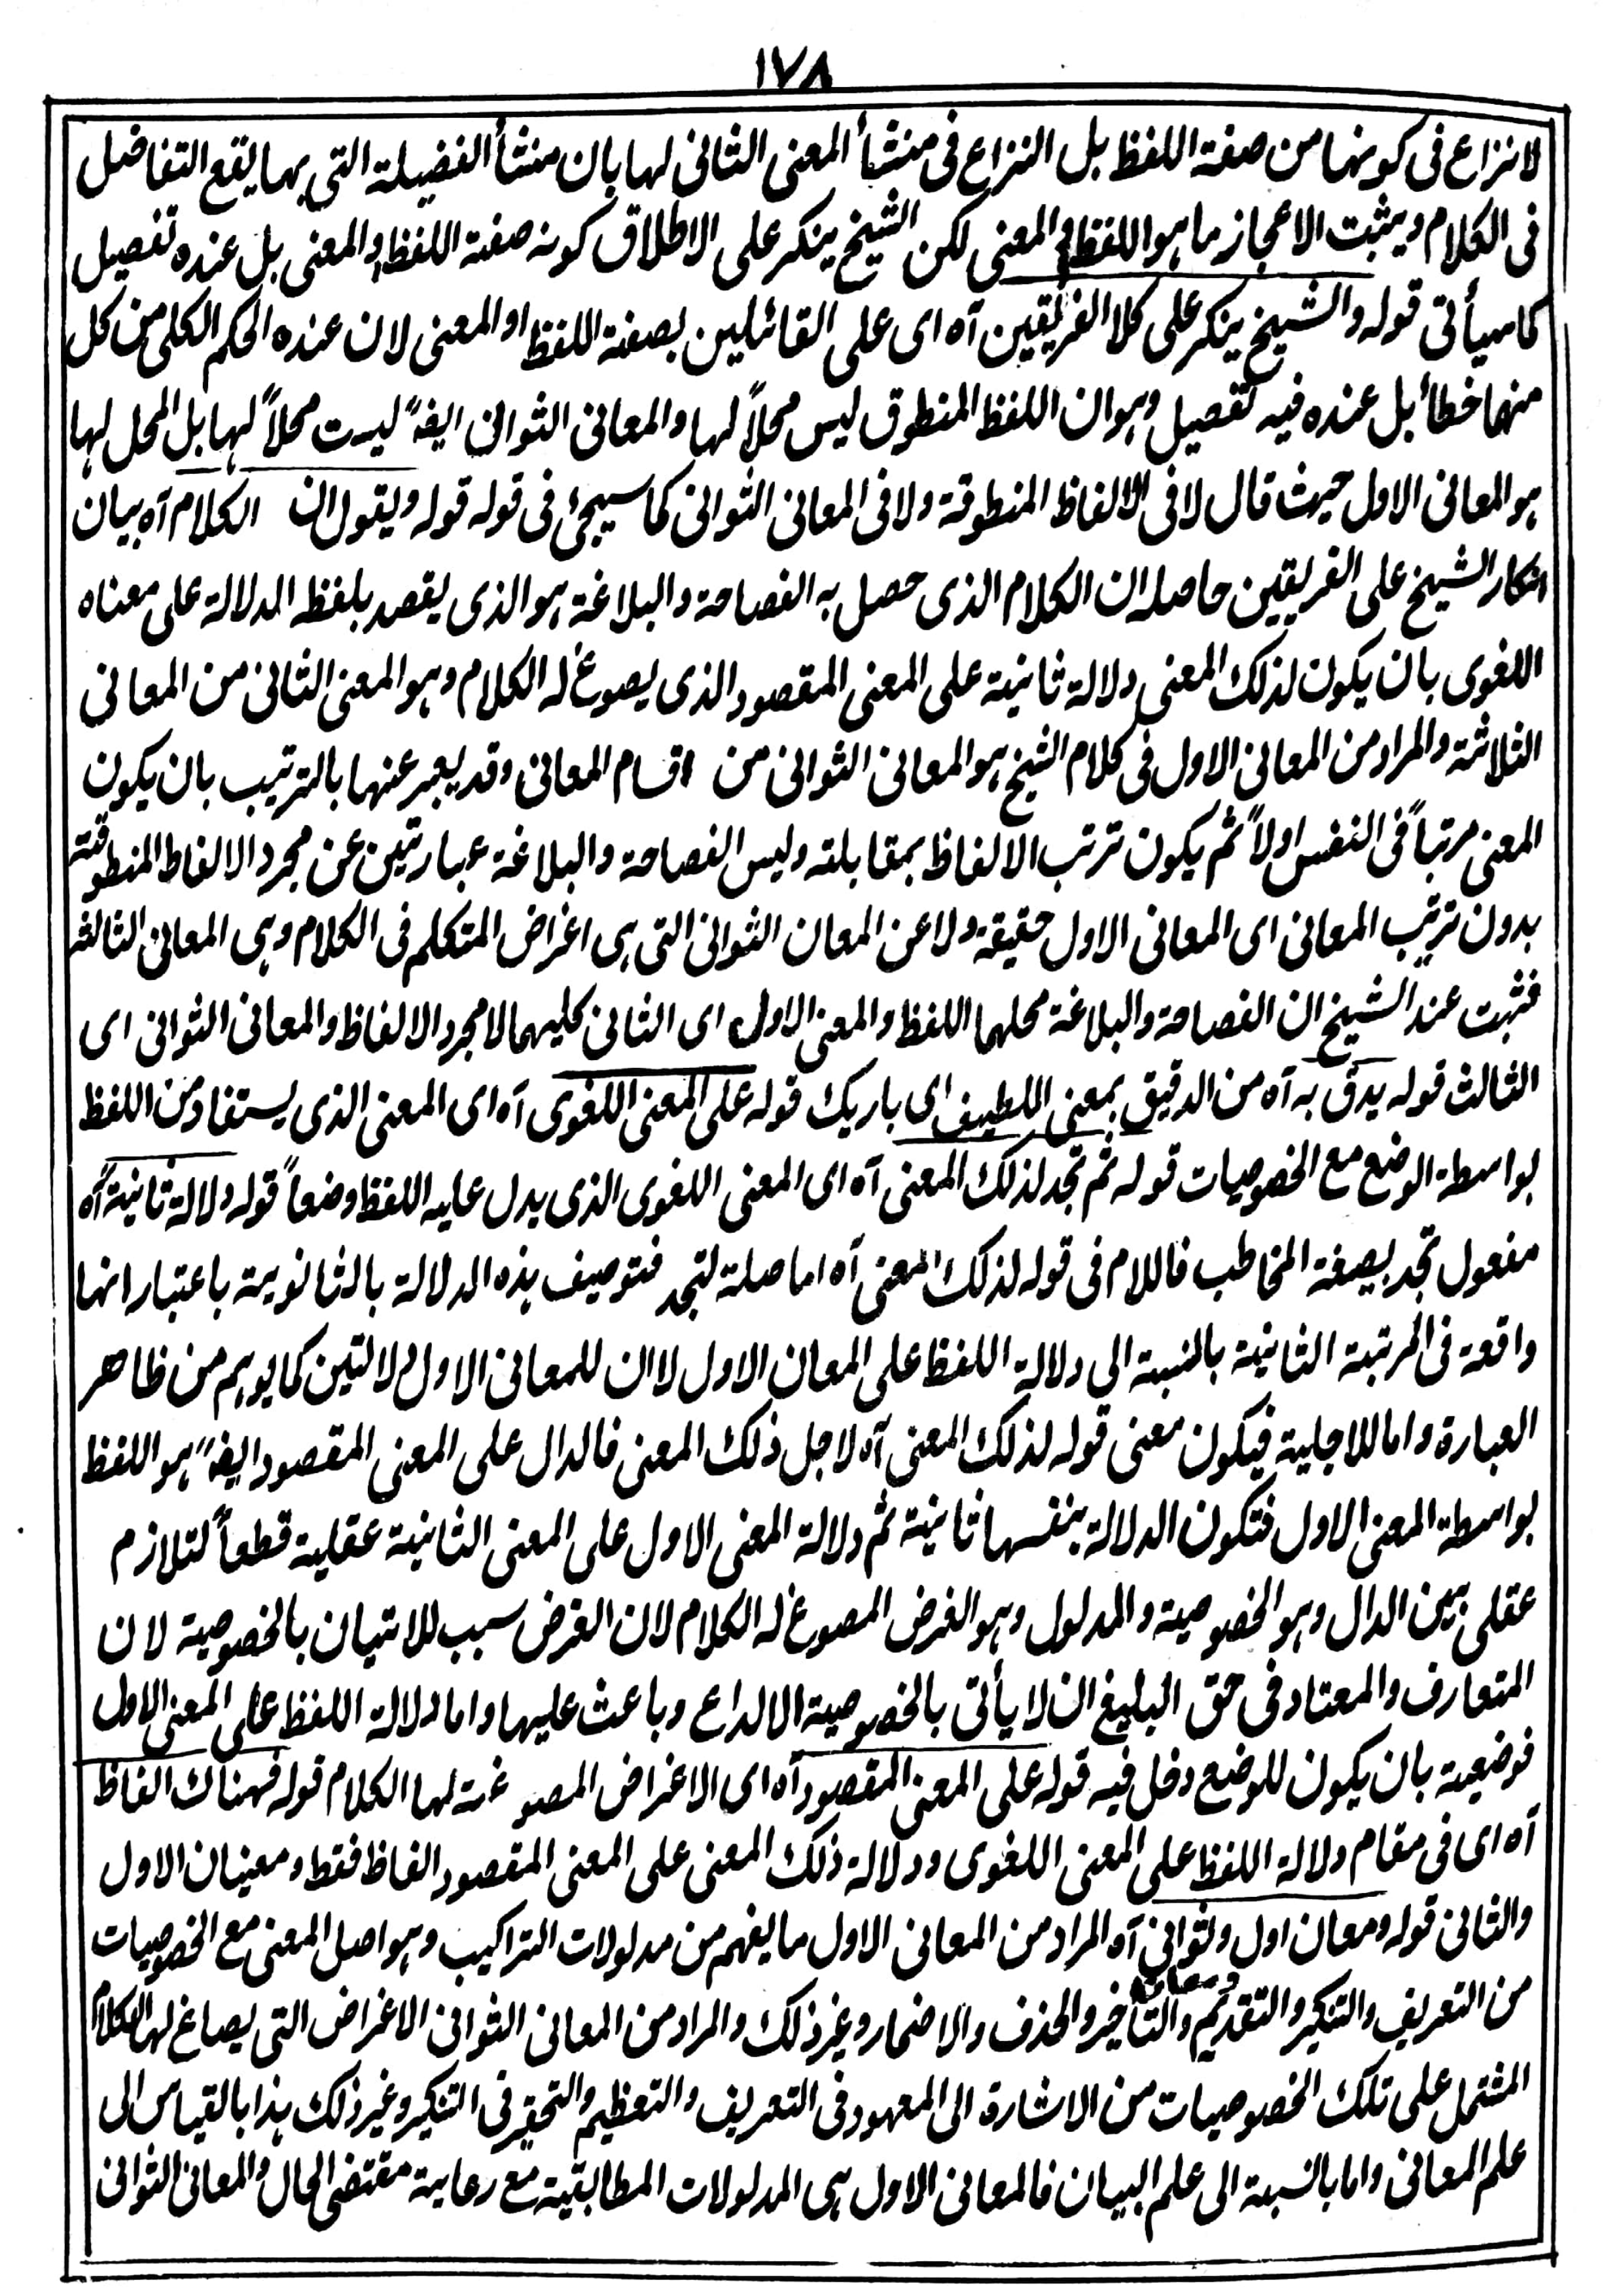 ١٧٨
لا نزاع فى كونها من صفة اللفظ بل النزاع فى منشأ المعنى الثانى لها بان منشأ الفضيلة التى بها يقع التفاضل
فى الكلام ويثبت الاعجاز ما هو اللفظ او المعنى لكن الشيخ ينكر على الاطلاق كونه صفة اللفظ والمعنى بل عنده تفصيل
كما سيأتى قوله والشيخ ينكر على كلا الفريقين آه اى على القائلين بصفة اللفظ او المعنى لان عنده الحكم الكلى من كل
منهما خطأ بل عنده فيه تفصيل وهو ان اللفظ المنطوق ليس محلاً لها والمعانى الثوانى ايضً ليست محلاً لها بل المحل لها
هو المعانى الاول حيث قال لا فى الالفاظ المنطوقة ولا فى المعانى الثوانى كما سيجئ فى قوله قوله ويقول ان الكلام آه بيان
انكار الشيخ على الفريقين حاصله ان الكلام الذى حصل به الفصاحة والبلاغة هو الذى يقصد بلفظه الدلالة على معناه
اللغوى بان يكون لذلك المعنى دلالة ثانية على المعنى المقصود الذى يصوغ له الكلام وهو المعنى الثانى من المعانى
الثلاثة والمراد من المعانى الاول فى كلام الشيخ هو المعانى الثوانى من اقسام المعانى وقد يعبر عنها بالترتيب بان يكون
المعنى مرتباً فى النفس اولاً ثم يكون ترتب الالفاظ بمقابلته وليس الفصاحة والبلاغة عبارتين عن مجرد الالفاظ المنطوقة
بدون ترتيب المعانى اى المعانى الاول حقيقة ولا عن المعان الثوانى التى هى اغراض المتكلم فى الكلام وهى المعانى الثالثة
فثبت عند الشيخ ان الفصاحة والبلاغة محلهما اللفظ والمعنى الاول اى الثانى كليهما لا مجرد الالفاظ والمعانى الثوانى اى
الثالث قوله يدق به آه من الدقيق بمعنى اللطيف اى باريك قوله على المعنى اللغوى آه اى المعنى الذى يستفاد من اللفظ
بواسطة الوضع مع الخصوصيات قوله ثم تجد لذلك المعنى آه اى المعنى اللغوى الذى يدل عليه اللفظ وضعاً قوله دلالة ثانيةً آه
مفعول تجد بصيغة المخاطب فاللام فى قوله لذلك المعنى آه اما صلة لتجد فتوصيف هذه الدلالة بالثانوية باعتبار انها
واقعة فى المرتبة الثانية بالنسبة الى دلالة اللفظ على المعان الاول لا ان للمعانى الاول دلالتين كما يوهم من ظاهر
العبارة واما للاجلية فيكون معنى قوله لذلك المعنى آه لاجل ذلك المعنى فالدال على المعنى المقصود ايضً هو اللفظ
بواسطة المعنى الاول فتكون الدلالة بنفسها ثانية ثم دلالة المعنى الاول على المعنى الثانية عقلية قطعاً لتلازم
عقلى بين الدال وهو الخصوصية والمدلول وهو الغرض المصوغ له الكلام لان الغرض سبب للاتيان بالخصوصية لان
المتعارف والمعتاد فى حق البليغ ان لا يأتى بالخصوصية الا لداع وباعث عليها واما دلالة اللفظ على المعنى الاول
فوضعية بان يكون للوضع دخل فيه قوله على المعنى المقصود آه اى الاغراض المصوغة لها الكلام قوله فهناك الفاظ
آه اى فى مقام دلالة اللفظ على المعنى اللغوى ودلالة ذلك المعنى على المعنى المقصود الفاظ فقط ومعنيان الاول
والثانى قوله ومعان اول وثوانى آه المراد من المعانى الاول ما يفهم من مدلولات التراكيب وهو اصل المعنى مع الخصوصيات
من التعريف والتنكير والتقديم والتأخير والحذف والاضمار وغير ذلك والمراد من المعانى الثوانى الاغراض التى يصاغ لها الكلام
المشتمل على تلك الخصوصيات من الاشارة الى المعهود فى التعريف والتعظيم والتحقير فى التنكير وغير ذلك هذا بالقياس الى
علم المعانى واما بالنسبة الى علم البيان فالمعانى الاول هى المدلولات المطابقية مع رعاية مقتضى الحال والمعانى الثوانى